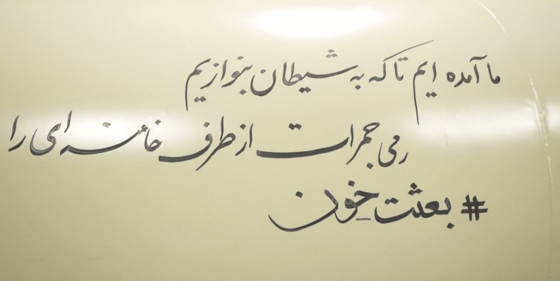 ما آمده ایم تا که به شیطان بنوازیم
رمی جمرات از طرف خامنه ای را
# بعثت خون